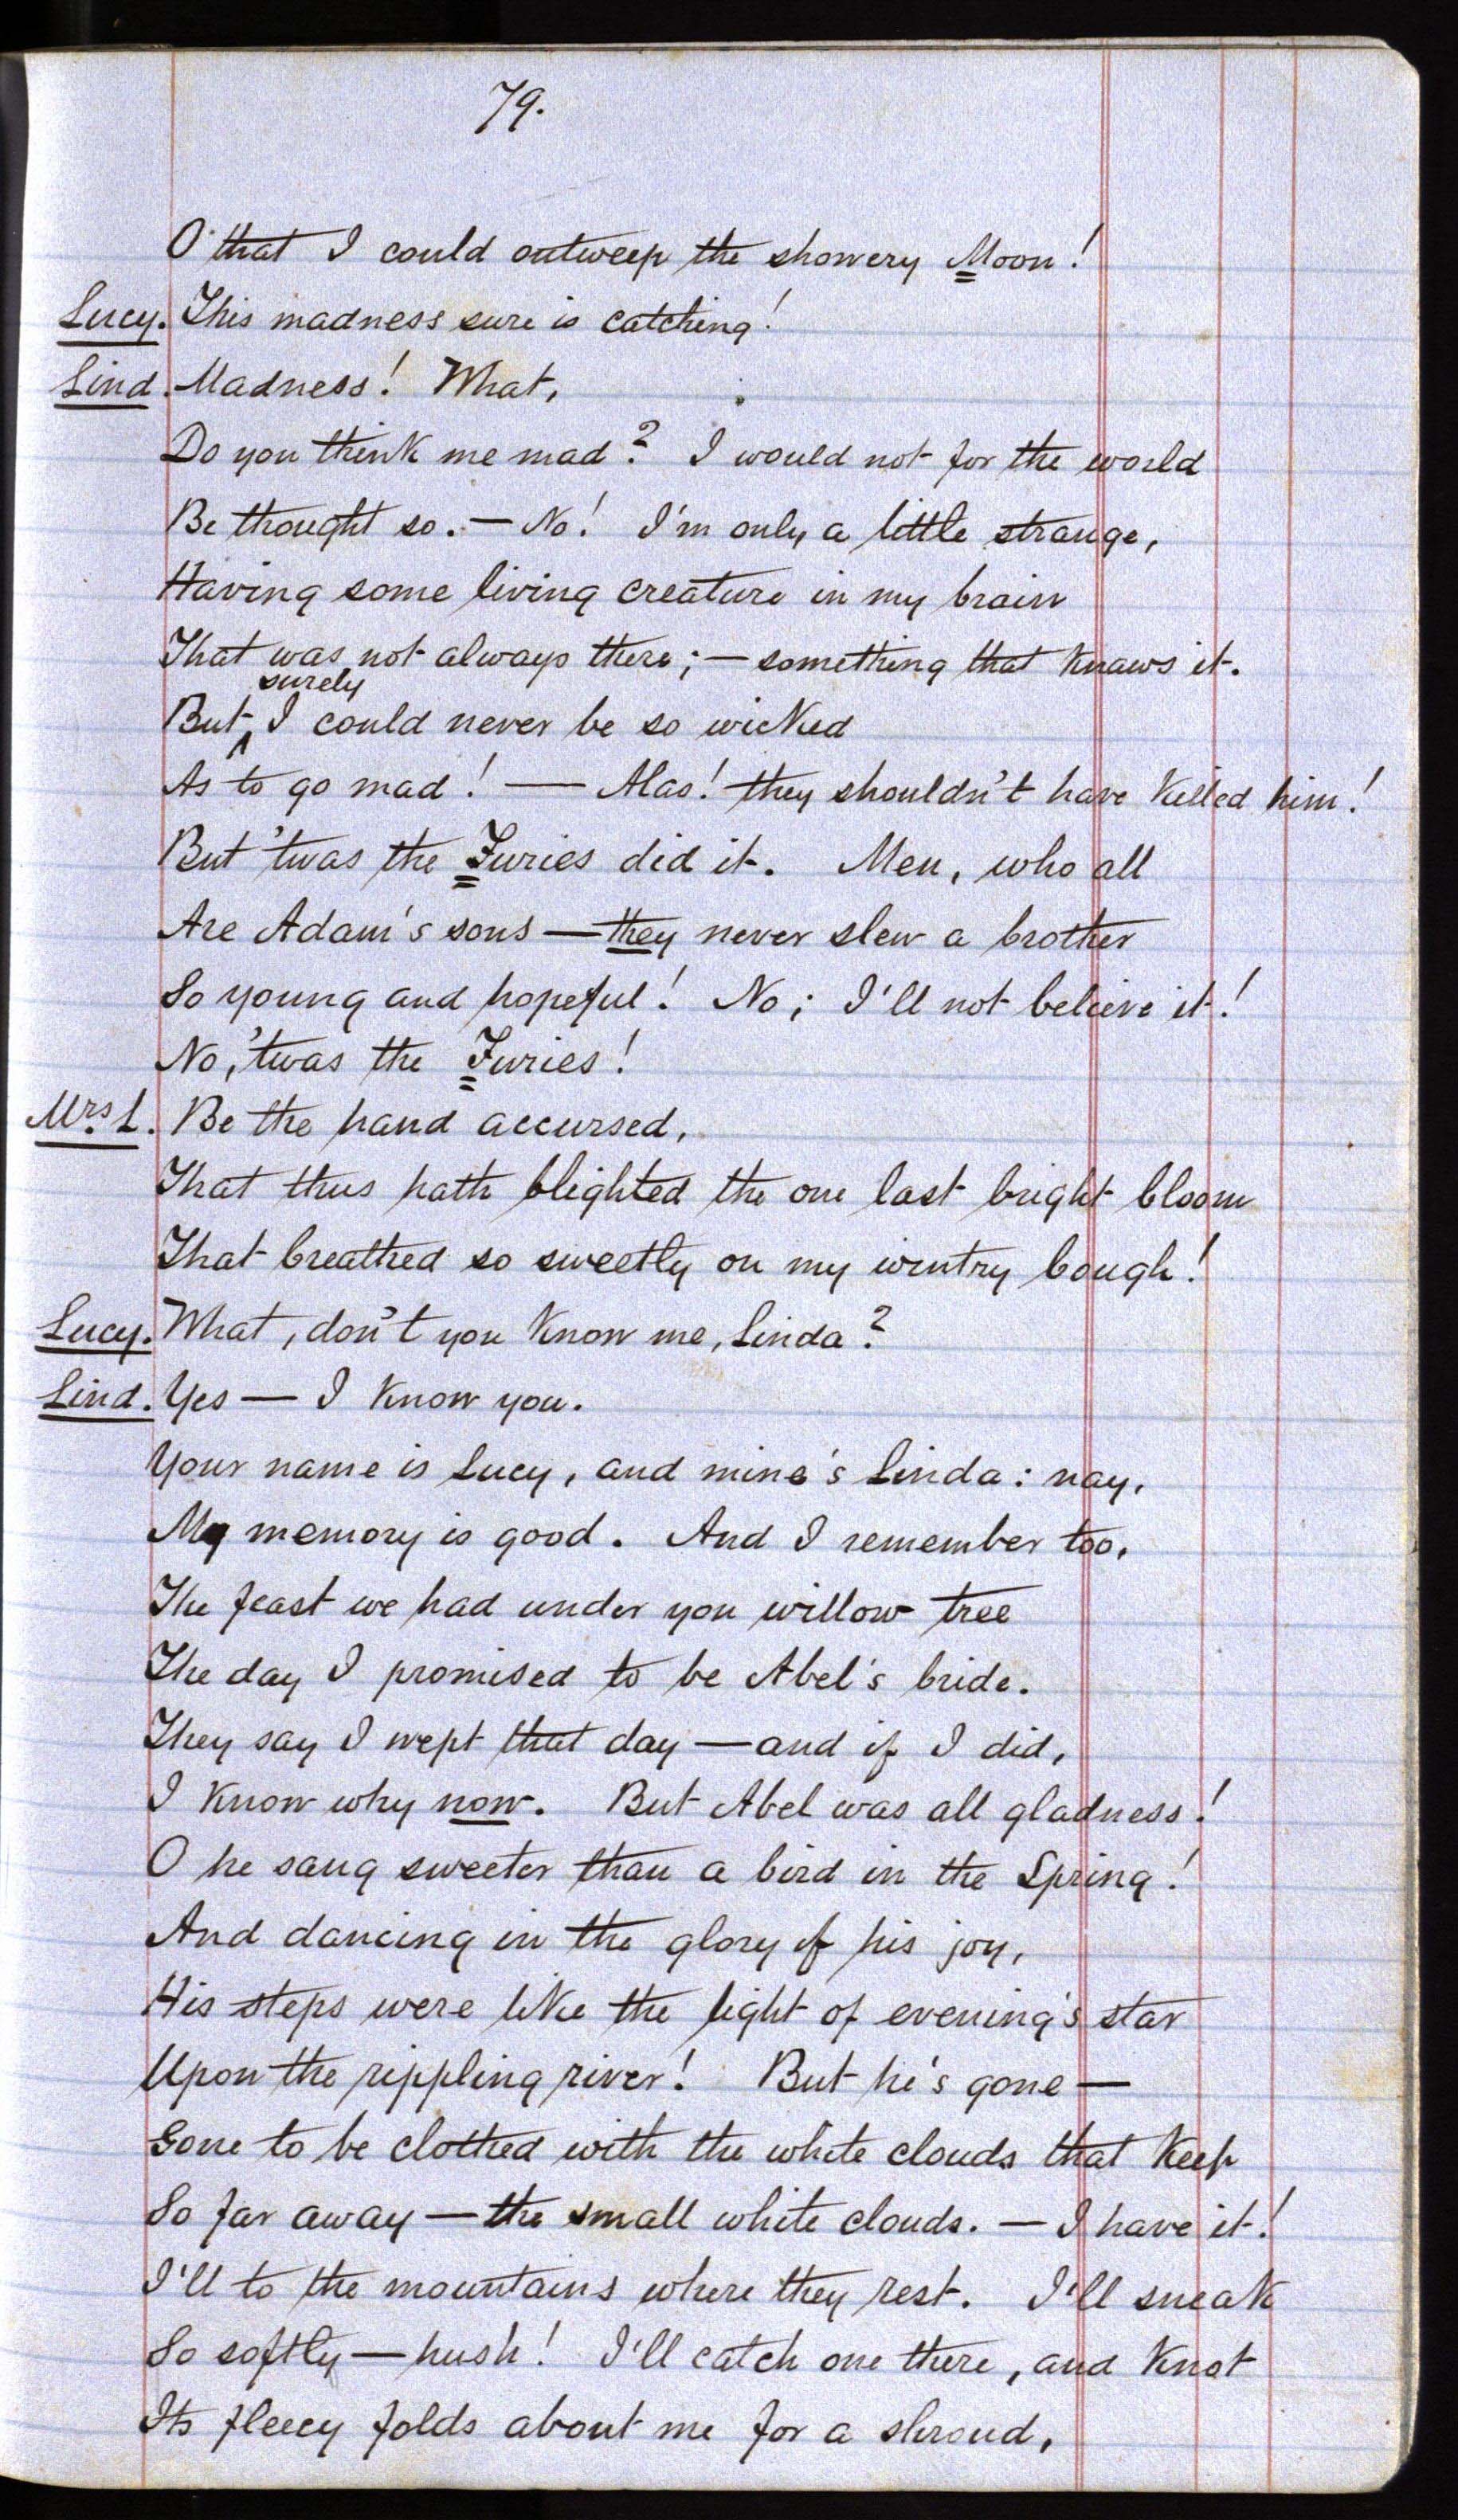 79.
O that I could outweep the showery Moon!
Lucy. This madness sure is catching!
Lind. Madness! What,
Do you think me mad? I would not for the world
Be thought so. — No! I'm only a little strange,
Having some living creature in my brain
That was not always there; — something that knaws it.
surely
But I could never be so wicked
As to go mad! — Alas! they shouldn't have killed him!
But 'twas the Furies did it. Men, who all
Are Adam's sons — they never slew a brother
So young and hopeful! No; I'll not believe it!
No, 'twas the Furies!
Mrs. L. Be the hand accursed,
That thus hath blighted the one last bright bloom
That breathed so sweetly on my wintry bough!
Lucy. What, don't you know me, Linda?
Lind. Yes — I know you.
Your name is Lucy, and mine's Linda: nay,
My memory is good. And I remember too,
The feast we had under yon willow tree
The day I promised to be Abel's bride.
They say I wept that day — and if I did,
I know why now. But Abel was all gladness!
O he sang sweeter than a bird in the Spring!
And dancing in the glory of his joy,
His steps were like the light of evening's star
Upon the rippling river! But he's gone —
Gone to be clothed with the white clouds that keep
So far away — the small white clouds. — I have it!
I'll to the mountains where they rest. I'll sneak
So softly — hush! I'll catch one there, and knot
Its fleecy folds about me for a shroud,